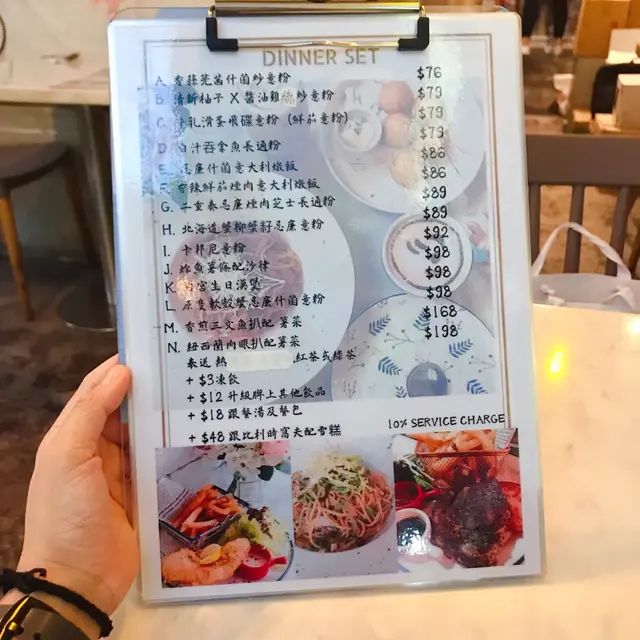 DINNER SET
A. 香蒜蔥茜什菌炒意粉 $76
B. 清新柚子 X 醬油雞 炒意粉 $79
C. 乳滑蛋飛碟意粉 (鮮茄意粉) $79
D. 白汁吞拿魚長通粉 $79
E. 忌廉什菌意大利燉飯 $86
F. 香辣鮮茄煙肉意大利燉飯 $86
G. 二重奏忌廉煙肉芝士長通粉 $89
H. 北海道蟹柳蟹籽忌廉意粉 $89
I. 卡邦尼意粉 $92
J. 炸魚薯條配沙律 $98
K. 宮生日漢堡 $98
L. 原隻軟殼蟹忌廉什菌意粉 $98
M. 香煎三文魚扒配薯菜 $168
N. 紐西蘭肉眼扒配薯菜 $198
奉送 熱 紅茶或綠茶
+ $3凍飲
+ $12 升級牌上其他飲品
+ $18 跟餐湯及餐包
10% SERVICE CHARGE
+ $48 跟比利時窩夫配雪糕